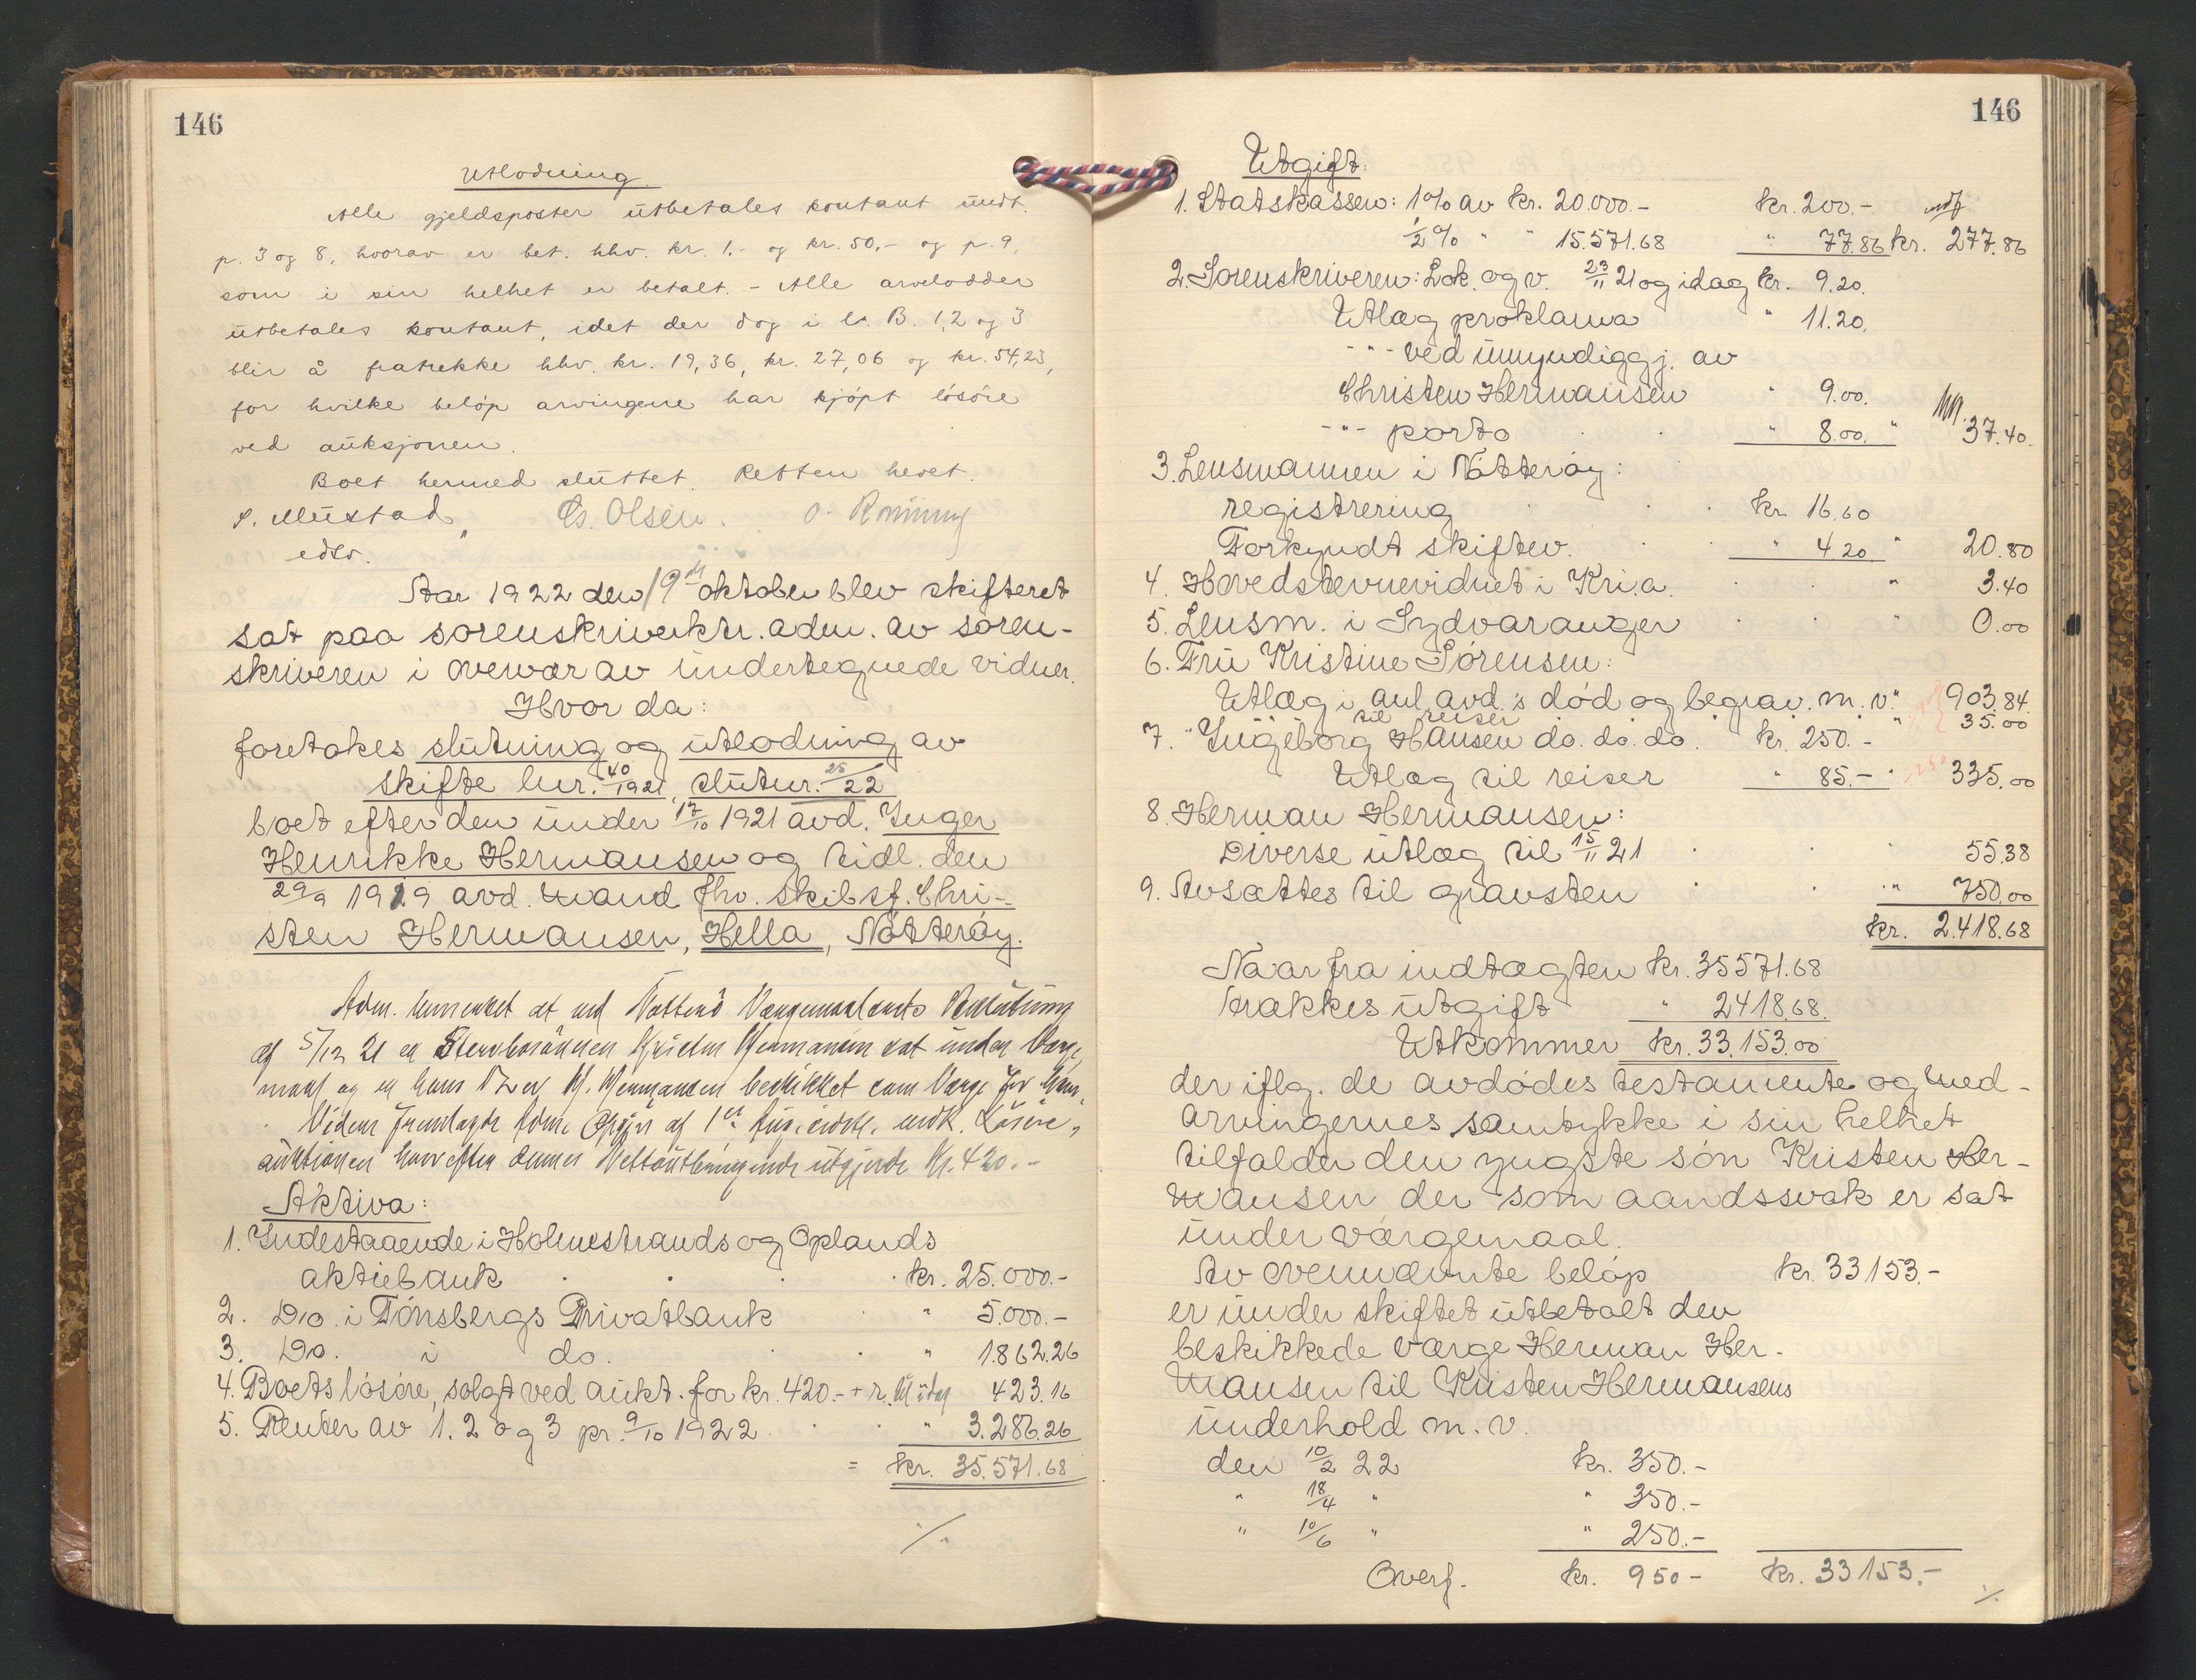 146
Utlodning.
Alle gjeldsposter utbetales kontant undt.
p. 3 og 8, hvorav er bet. hhv. kr. 1,- og kr. 50,- og p. 9,
som i sin helhet er betalt. - Alle arvelodder
utbetales kontant, idet der dog i lr. B. 1, 2 og 3
blir å fratrekke hhv. kr. 19,36, kr. 27,06 og kr. 54,23,
for hvilke beløp arvingene har kjøpt løsøre
ved auksjonen.
Boet hermed sluttet. Retten hevet.
S. Mustad, Cs. Olsen. O. Rönning
edsv.
Aar 1922 den 19de oktober blev skifteret
sat paa sorenskriverktr. adm. av soren-
skriveren i overvær av undertegnede vidner.
Hvor da:
foretokes slutning og utlodning av
skifte lnr. 40/1921, slutnr. 25/22
boet efter den under 17/10 1921 avd. Inger
Henrikke Hermansen og tidl. den
29/9 1919 avd. mand fhv. skibsf. Chri-
sten Hermansen, Hella, Nøtterøy.
Adm. bemerket at ved Nøtterö Værgemaalsrets Beslutning
af 5/12 21 er Sterboesönnen Kristen Hermansen sat under Værge-
maal og er hans Bror H. Hermansen beskikket som Værge for ham.
Videre fremlagde Adm. Opgjör af 1ste ds. vedk. Løsøre-
auktionen hvorefter dennes Nettoutbringende utgjorde Kr. 420.-
Aktiva:
1. Indestaaende i Holmestrands og Oplands
aktiebank . . . kr. 25.000.-
2. Do. i Tønsbergs Privatbank . " 5.000.-
3. Do. i do. . . " 1.862.26
4. Boets løsøre, solgt ved aukt. for kr. 420.- + r. 423.16
5. Renter av 1. 2 og 3 pr. 9/10 1922 . . " 3.286.26
= kr. 35.571.68
./.
146
Utgift:
1. Statskassen: 1% av kr. 20.000.- kr. 200.-
1/2% " " 15.571.68 " 77.86 kr. 277.86
2. Sorenskriveren: Lok. og v. 23/11 21 og idag kr. 9.20.
Utlæg proklama " 11.20.
-"- ved umyndiggj. av
Christen Hermansen " 9.00.
-"- porto . . " 8.00. " 37.40.
3. Lensmannen i Nøtterøy:
registrering . . kr. 16.60
Forkyndt skiftev. . " 4.20 " 20.80
4. Hovedstevnevidnet i Kri.a. . . " 3.40
5. Lensm. i Sydvaranger . . " 0.00
6. Fru Kristine Sørensen:
Utlæg i anl. avd.s død og begrav. m. v. " 903.84.
til reiser " 35.00
7. " Ingeborg Hansen do. do. do. kr. 250.-
Utlæg til reiser " 85.- " 335.00
8. Herman Hermansen:
Diverse utlæg til 15/11 21 . . . 55.38
9. Avsættes til gravsten . . " 750.00
kr. 2.418.68
Naar fra indtægten kr. 35571.68
trækkes utgift " 2418.68.
Utkommer kr. 33.153.00
der iflg. de avdødes testamente og med-
arvingernes samtykke i sin helhet
tilfalder den yngste søn Kristen Her-
mansen der som aandssvak er sat
under værgemaal.
Av ovennævnte beløp kr. 33153.-
er under skiftet utbetalt den
beskikkede værge Herman Her-
mansen til Kristen Hermansens
underhold m. v.
den 10/2 22 kr. 350.-
" 18/4 " " 350.-
" 10/6 " " 250.-
Overf. kr. 950- kr. 33153.-
./.